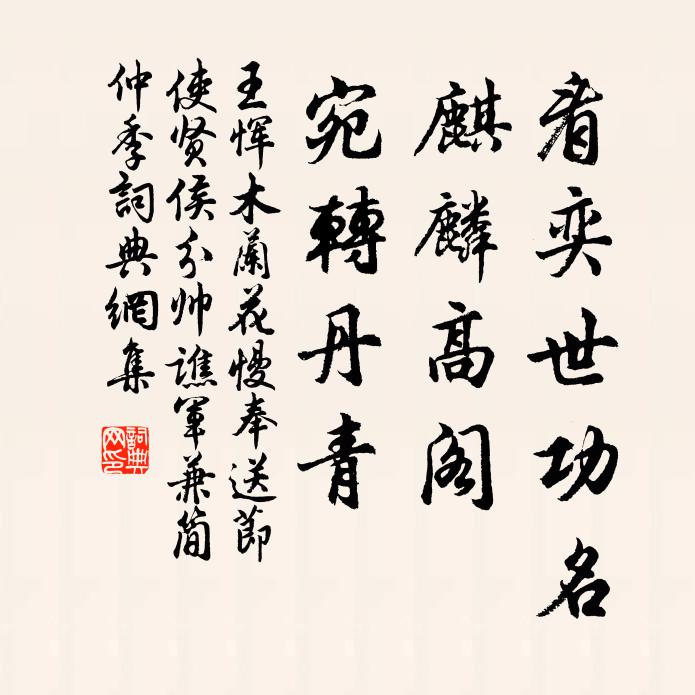 看奕世功名
麒麟高阁
宛轉丹青
王恽木蘭花慢奉送節
使贤侯分帅譙軍兼简
仲季詞典網集
詞典网印